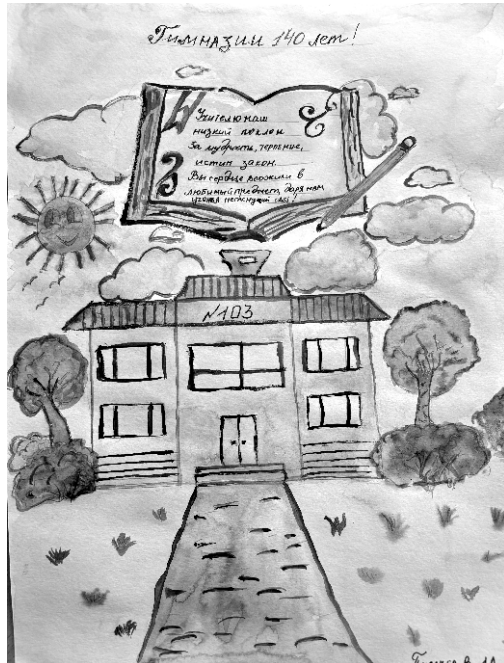 Гимназии 140 лет!
Учителю наш
низкий поклон
За мудрость, терпение,
истин закон.
Вы сердце вложили в
любимый предмет, даря нам
№103